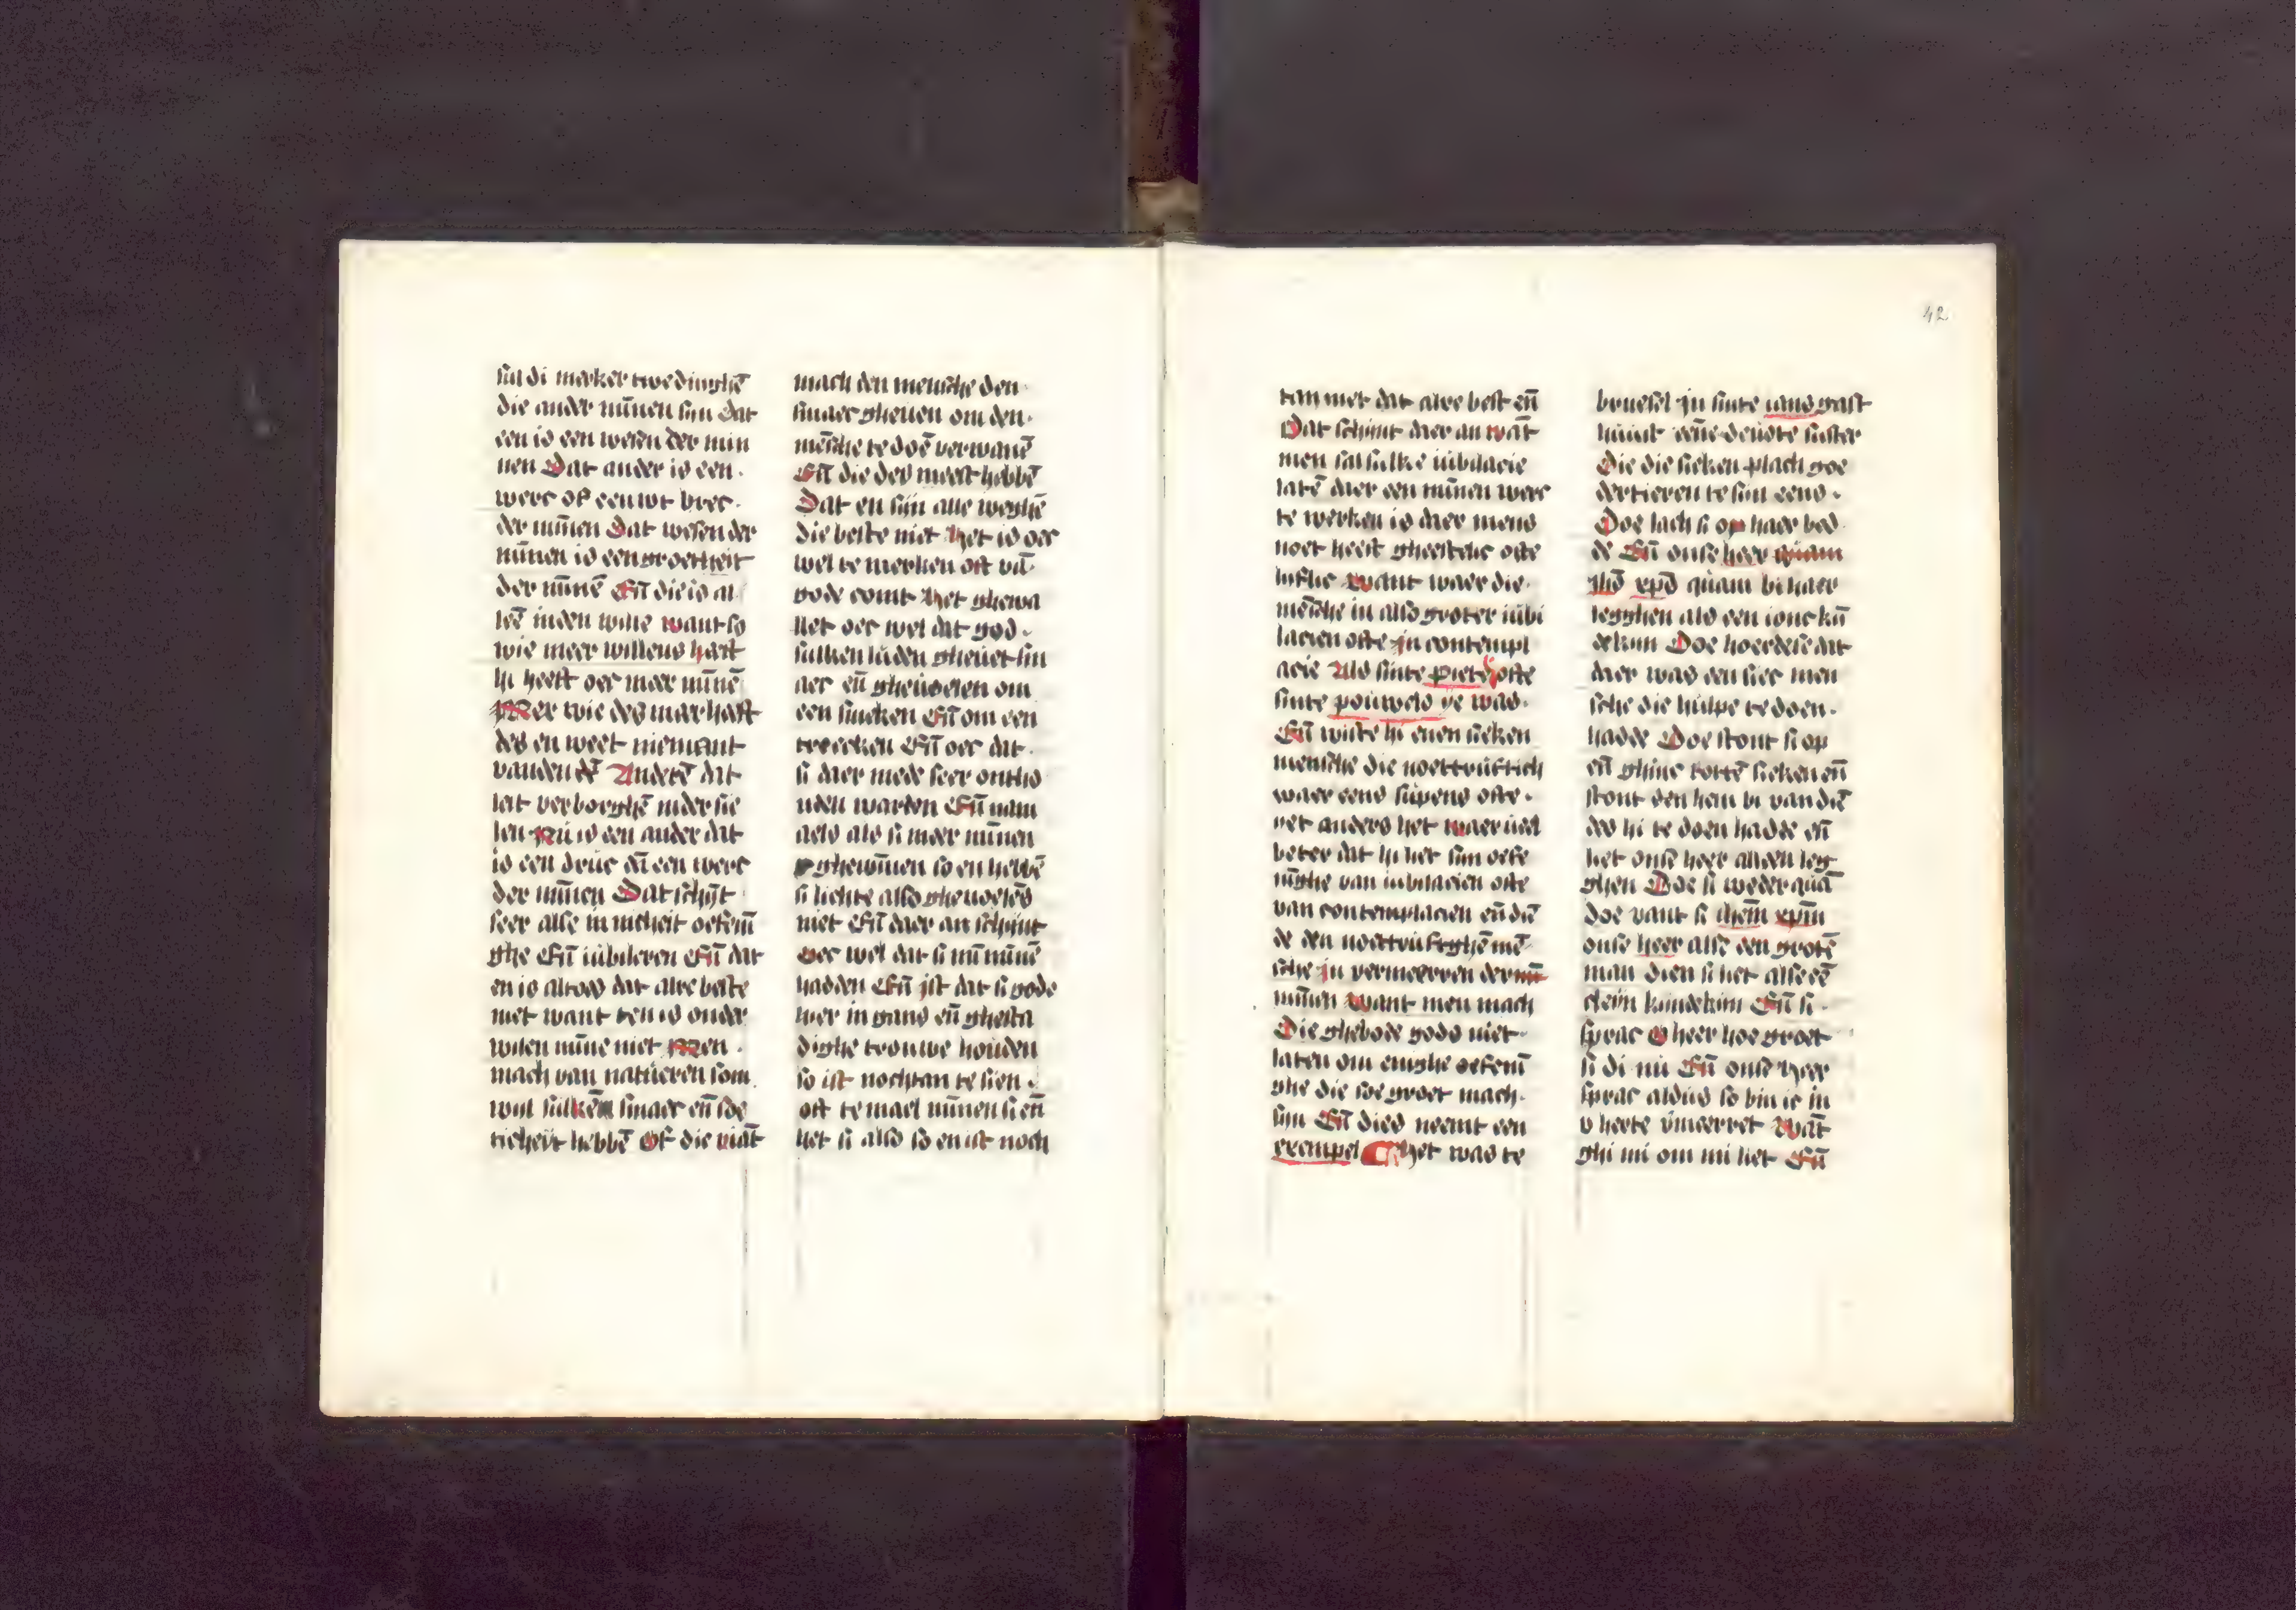 sul di merken twe dinghē
die ander mīnen sijn Dat
een is een wesen der min
nen Dat ander is een
werc of een wt brec
der mīnen Dat wesen der
mīnen is een groetheit
der mīnē Eñ die is al
leē inden wille want so
wie meer willens haft
hi heeft oec meer mīnē
Mer wie des mar haft
des en weet niemant
vanden Anderē dat
leit verborghē inder sie
len Nu is een ander dat
is een werc
der mīnen Dat schijt
seer alse īnicheit oefenī
ghe Eñ iubileren Eñ dat
en is altoes dat alre beste
niet want ten is onder
wilen mīne niet Men
mach van natueren som
wijl sulkē smaec eñ soe
ticheit hebbē Of die viāt
mach den mensche den
smaec gheuen om den
mēsche te doē verwanē
Eñ die des meest hebbē
Dat en sijn alle weghē
die beste niet Het is oec
wel te merken oft vā
gode comt Het gheua
llet oec wel dat god
sulken luden gheuet sm
aec eñ gheuoelen om
een smeken Eñ om een
trecken Eñ oec dat
si daer mede seer ontho
uden warden Eñ nam
aels als si meer mīnen
ghewīnen so en hebbē
si lichte also gheuoelēs
niet Eñ daer an schijnt
oec wel dat si mī mīnē
hadden Eñ ist dat si gode
hier in gans eñ ghesta
dighe trouwe houden
so ist nochtan te sien
oft te mael mīnen si eñ
het si also so en ist noch
tan niet dat alre best eñ
Dat schijnt daer an wāt
men sal sulke iubilacie
latē daer een mīnen werc
te werken is daer mens
noet heeft gheestelic ofte
liflic Want waer die
mēsche in also groter iubi
lacien ofte in contempl
acie Als sinte pieter ofte
sinte pouwels ye was
Eñ wiste hi enen sieken
mensche die noettruftich
waer eens supens ofte
yet anders het waer ueel
beter dat hi liet sijn oefe
nīghe van iubilacien ofte
van contemplacien eñ diē
de den noettruftghē mē
sche in vermeerren der
mīnen Want men mach
Die ghebode gods niet
laten om enighe oefenī
ghe die soe groet mach
sijn Eñ dies neemt een
exempel Het was te
bruesel in sinte ians gast
huuse eene deuote suster
Die die sieken plach goe
dertieren te sijn eens
Doe lach si op haer bed
de Eñ onse heer quam
ihs xps quam bi haer
legghen als een ionc kī
dekijn Doe hoerdese dat
daer was een siec men
sche die hulpe te doen
hadde Doe stont si op
eñ ghinc totē sieken eñ
stont den hem bi van diē
des hi te doen hadde eñ
liet onse heer alden leg
ghen Doe si weder quā
doe vant si ihem xpm
onse heer alse een grotē
man dien si liet alse eē
clein kindekijn Eñ si
sprac O heer hoe groet
si di nu Eñ onse Heer
sprac aldus so bin ic in
v herte vmeerret Wāt
ghi mi om mi liet Eñ
42